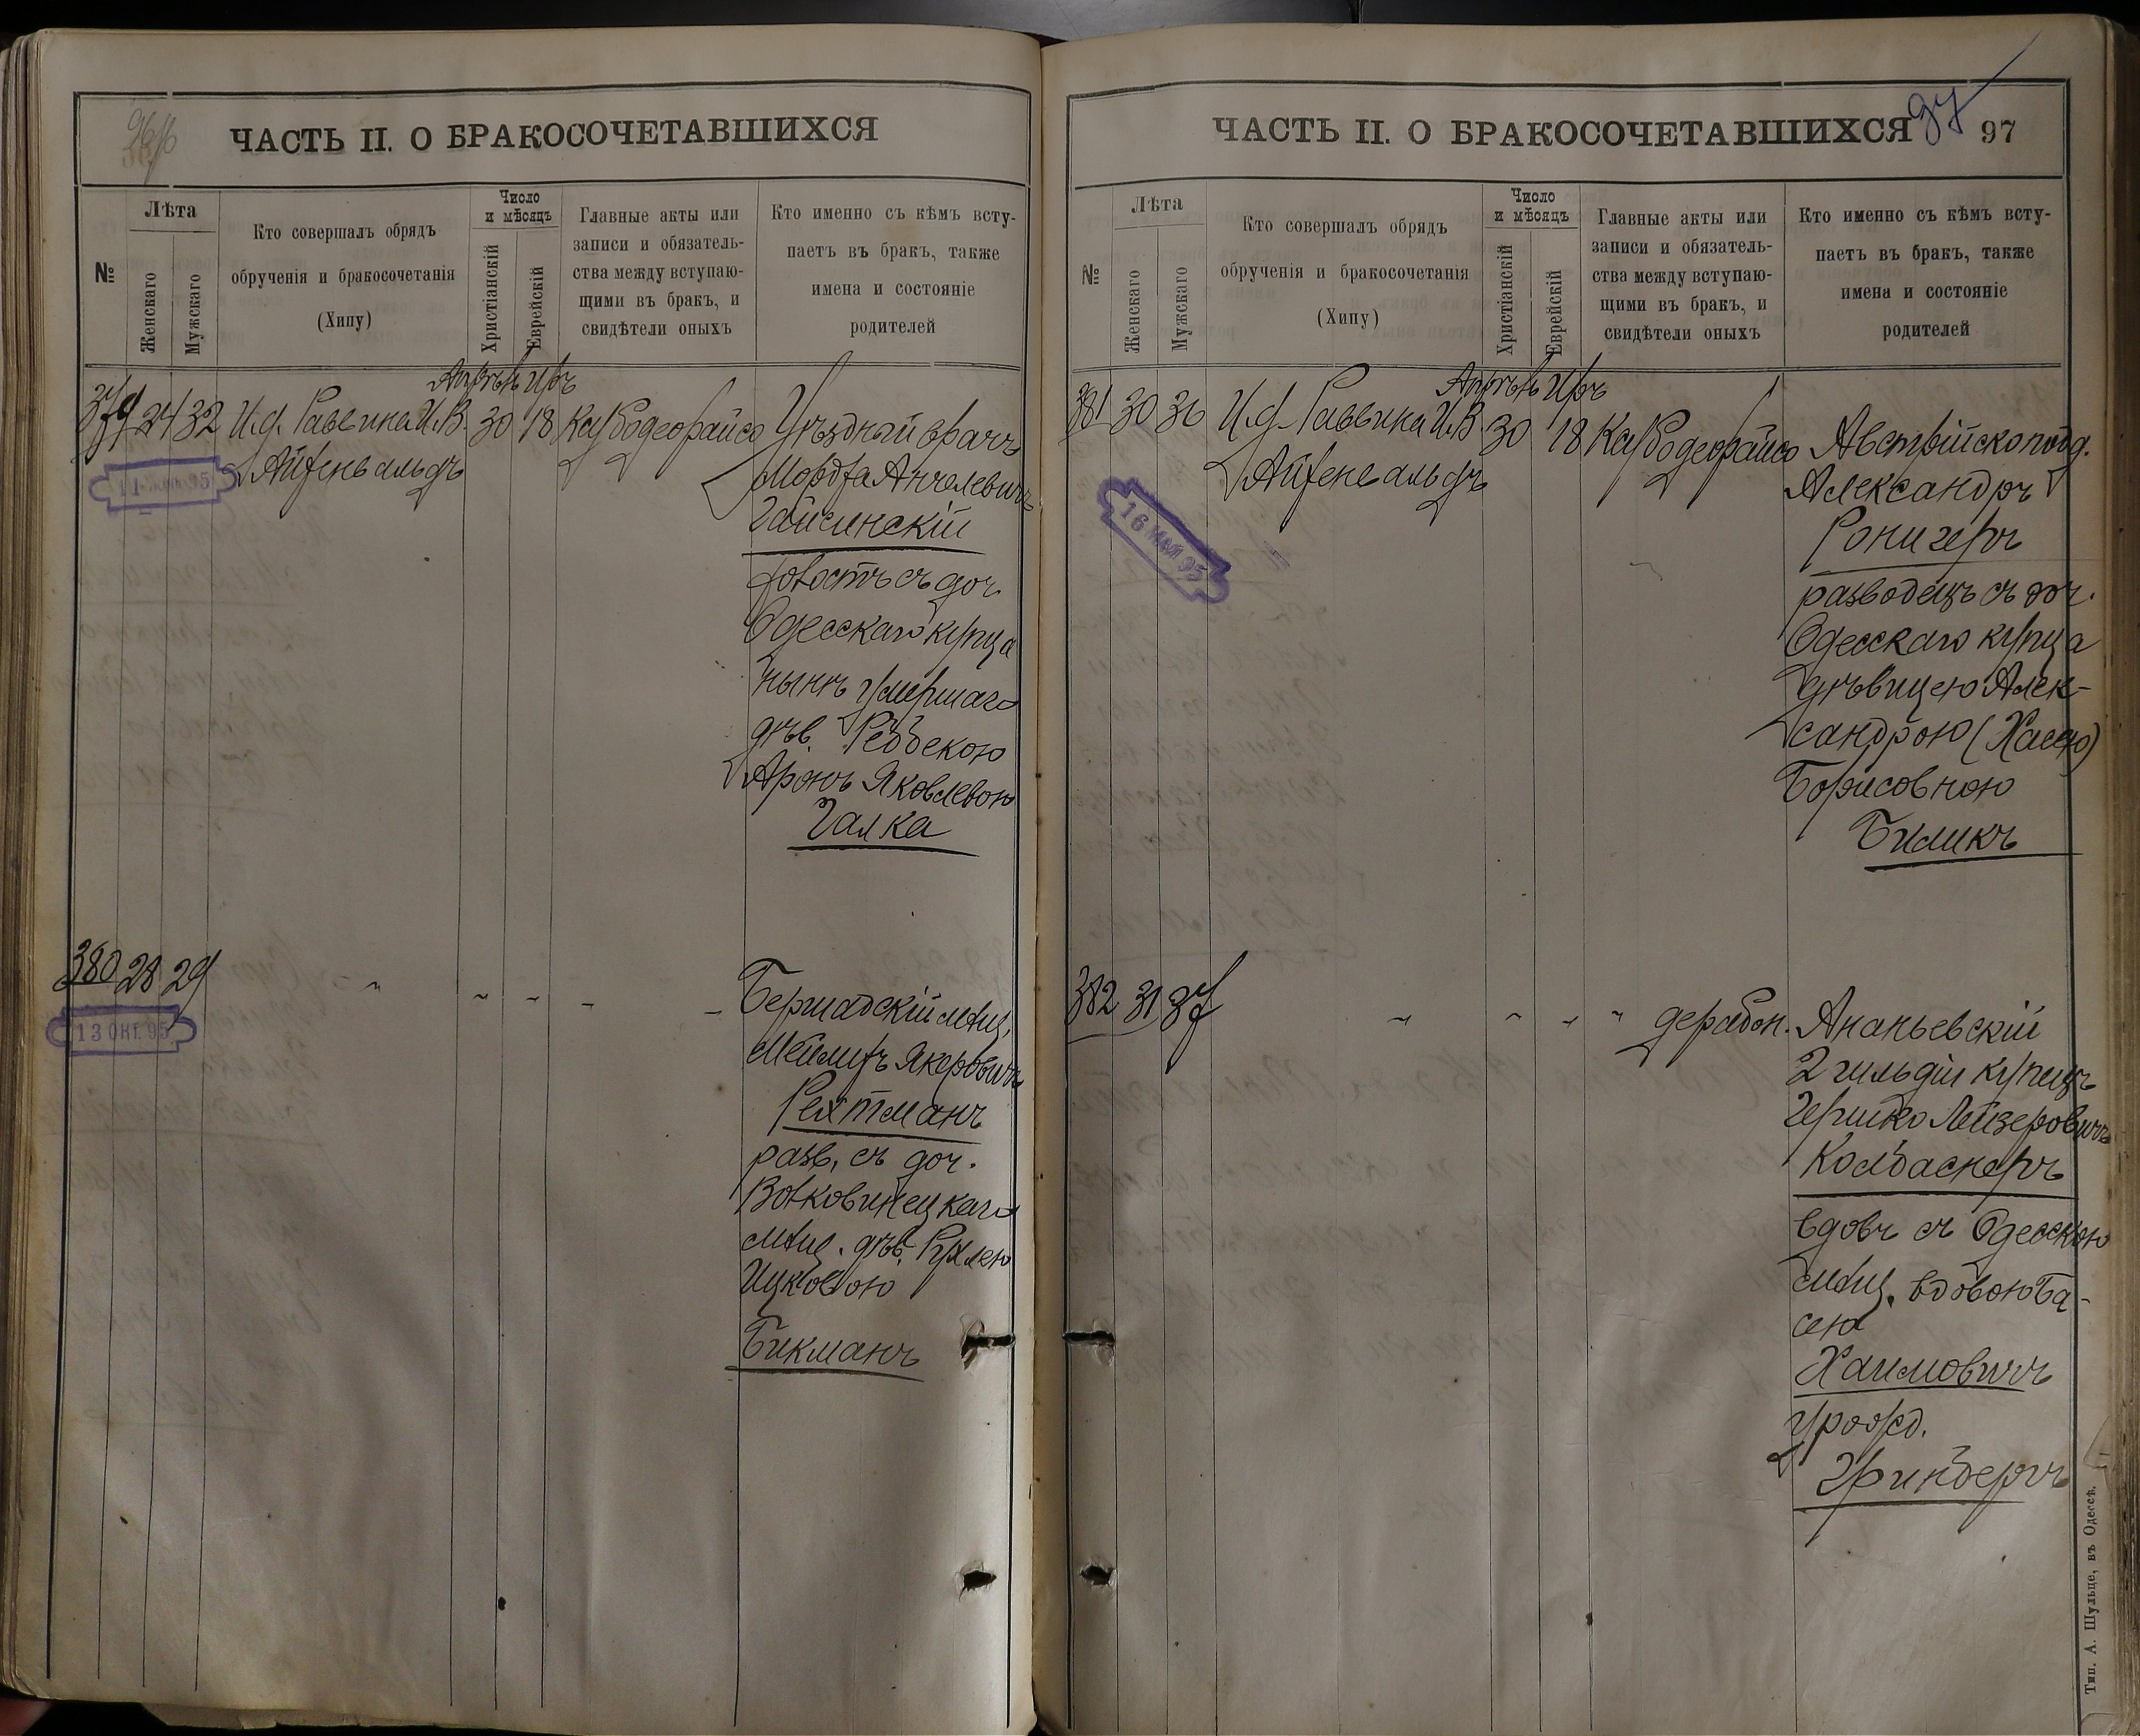 ЧАСТЬ II. О БРАКОСОЧЕТАВШИХСЯ
№
Лѣта
Женскаго
Мужскаго
Кто совершалъ обрядъ
обрученія и бракосочетанія
(Хипу)
Число
и мѣсяцъ
Христіанскій
Еврейскій
Главные акты или
записи и обязатель-
ства между вступаю-
щими въ бракъ, и
свидѣтели оныхъ
Кто именно съ кѣмъ всту-
паетъ въ бракъ, также
имена и состояніе
родителей
Апрѣль Iръ
379 24 32 И.д. Раввина И.В. 30 18
Айзенвальдъ
Уѣздный врачъ
Мордка Анчелевичъ
Гайсинскій
холостъ съ доч.
Одесскаго купца
нынѣ умершаго
дѣв. Ребекою
Аронъ Яковлевою
Галка
380 28 29 " " " "
13 ОКТ. 95
Бершадскій мѣщ.
Рехтманъ
разв. съ доч.
Волковинецкаго
мѣщ. дѣв. Рухлею
Ицковою
Бикманъ
ЧАСТЬ II. О БРАКОСОЧЕТАВШИХСЯ
97
№
Лѣта
Женскаго
Мужскаго
Кто совершалъ обрядъ
обрученія и бракосочетанія
(Хипу)
Число
и мѣсяцъ
Христіанскій
Еврейскій
Главные акты или
записи и обязатель-
ства между вступаю-
щими въ бракъ, и
свидѣтели оныхъ
Кто именно съ кѣмъ всту-
паетъ въ бракъ, также
имена и состояніе
родителей
Апрѣль Iръ
381 30 36 И.д. Раввина И.В. 30 18
Айзенвальдъ
16 МАЯ 95
Австрійско подд.
Александръ
Ронигеръ
разводецъ съ доч.
Одесскаго купца
дѣвицею Алек-
сандрою (Хасею)
Борисовною
Биликъ
382 31 37 " " " "
Ананьевскій
2 гильдіи купецъ
Гершко Лейзеровичъ
Колбаснеръ
вдов. съ Одесскою
мѣщ. вдовою Ба-
сею
Хаимовичъ
урожд.
Гринбергъ
Тип. А. Шульце, въ Одессѣ.